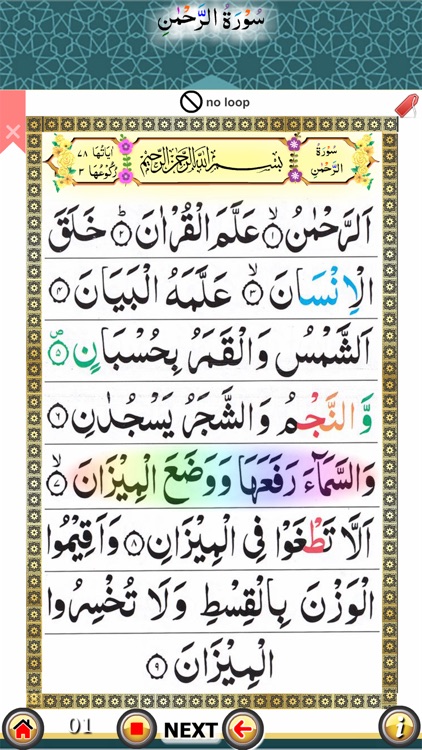 سُوْرَةُ الرَّحْمٰنِ
no loop
سُوْرَةُ
الرَّحْمٰنِ
بِسْمِ اللّٰهِ الرَّحْمٰنِ الرَّحِيْمِ
اٰيَاتُهَا ٧٨
رُكُوْعُهَا ٣
اَلرَّحْمٰنُ ۙ﴿١﴾ عَلَّمَ الْقُرْاٰنَ ؕ﴿٢﴾ خَلَقَ
الْاِنْسَانَ ۙ﴿٣﴾ عَلَّمَهُ الْبَيَانَ ﴿٤﴾
اَلشَّمْسُ وَالْقَمَرُ بِحُسْبَانٍ ۪﴿٥﴾
وَّالنَّجْمُ وَالشَّجَرُ يَسْجُدٰنِ ﴿٦﴾
وَالسَّمَآءَ رَفَعَهَا وَوَضَعَ الْمِيْزَانَ ۙ﴿٧﴾
اَلَّا تَطْغَوْا فِى الْمِيْزَانِ ﴿٨﴾ وَاَقِيْمُوا
الْوَزْنَ بِالْقِسْطِ وَلَا تُخْسِرُوا
الْمِيْزَانَ ﴿٩﴾
01
NEXT
i